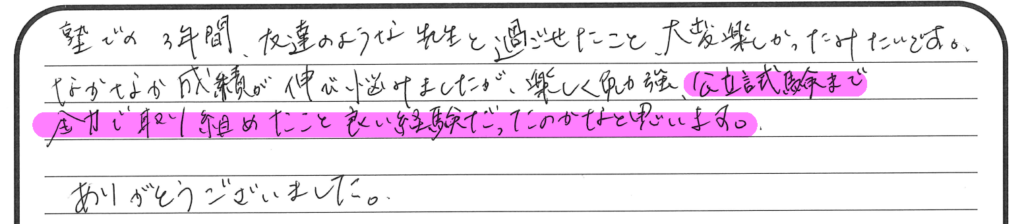 塾での3年間、友達のような先生と過ごせたこと、大変楽しかったみたいです。
なかなか成績が伸び悩みましたが、楽しく勉強、公立試験まで
全力で取り組めたこと良い経験だったのかなと思います。
ありがとうございました。